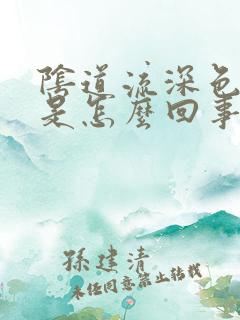 陰道流深色
是怎麼回事
孫建清
未經同意禁止轉載